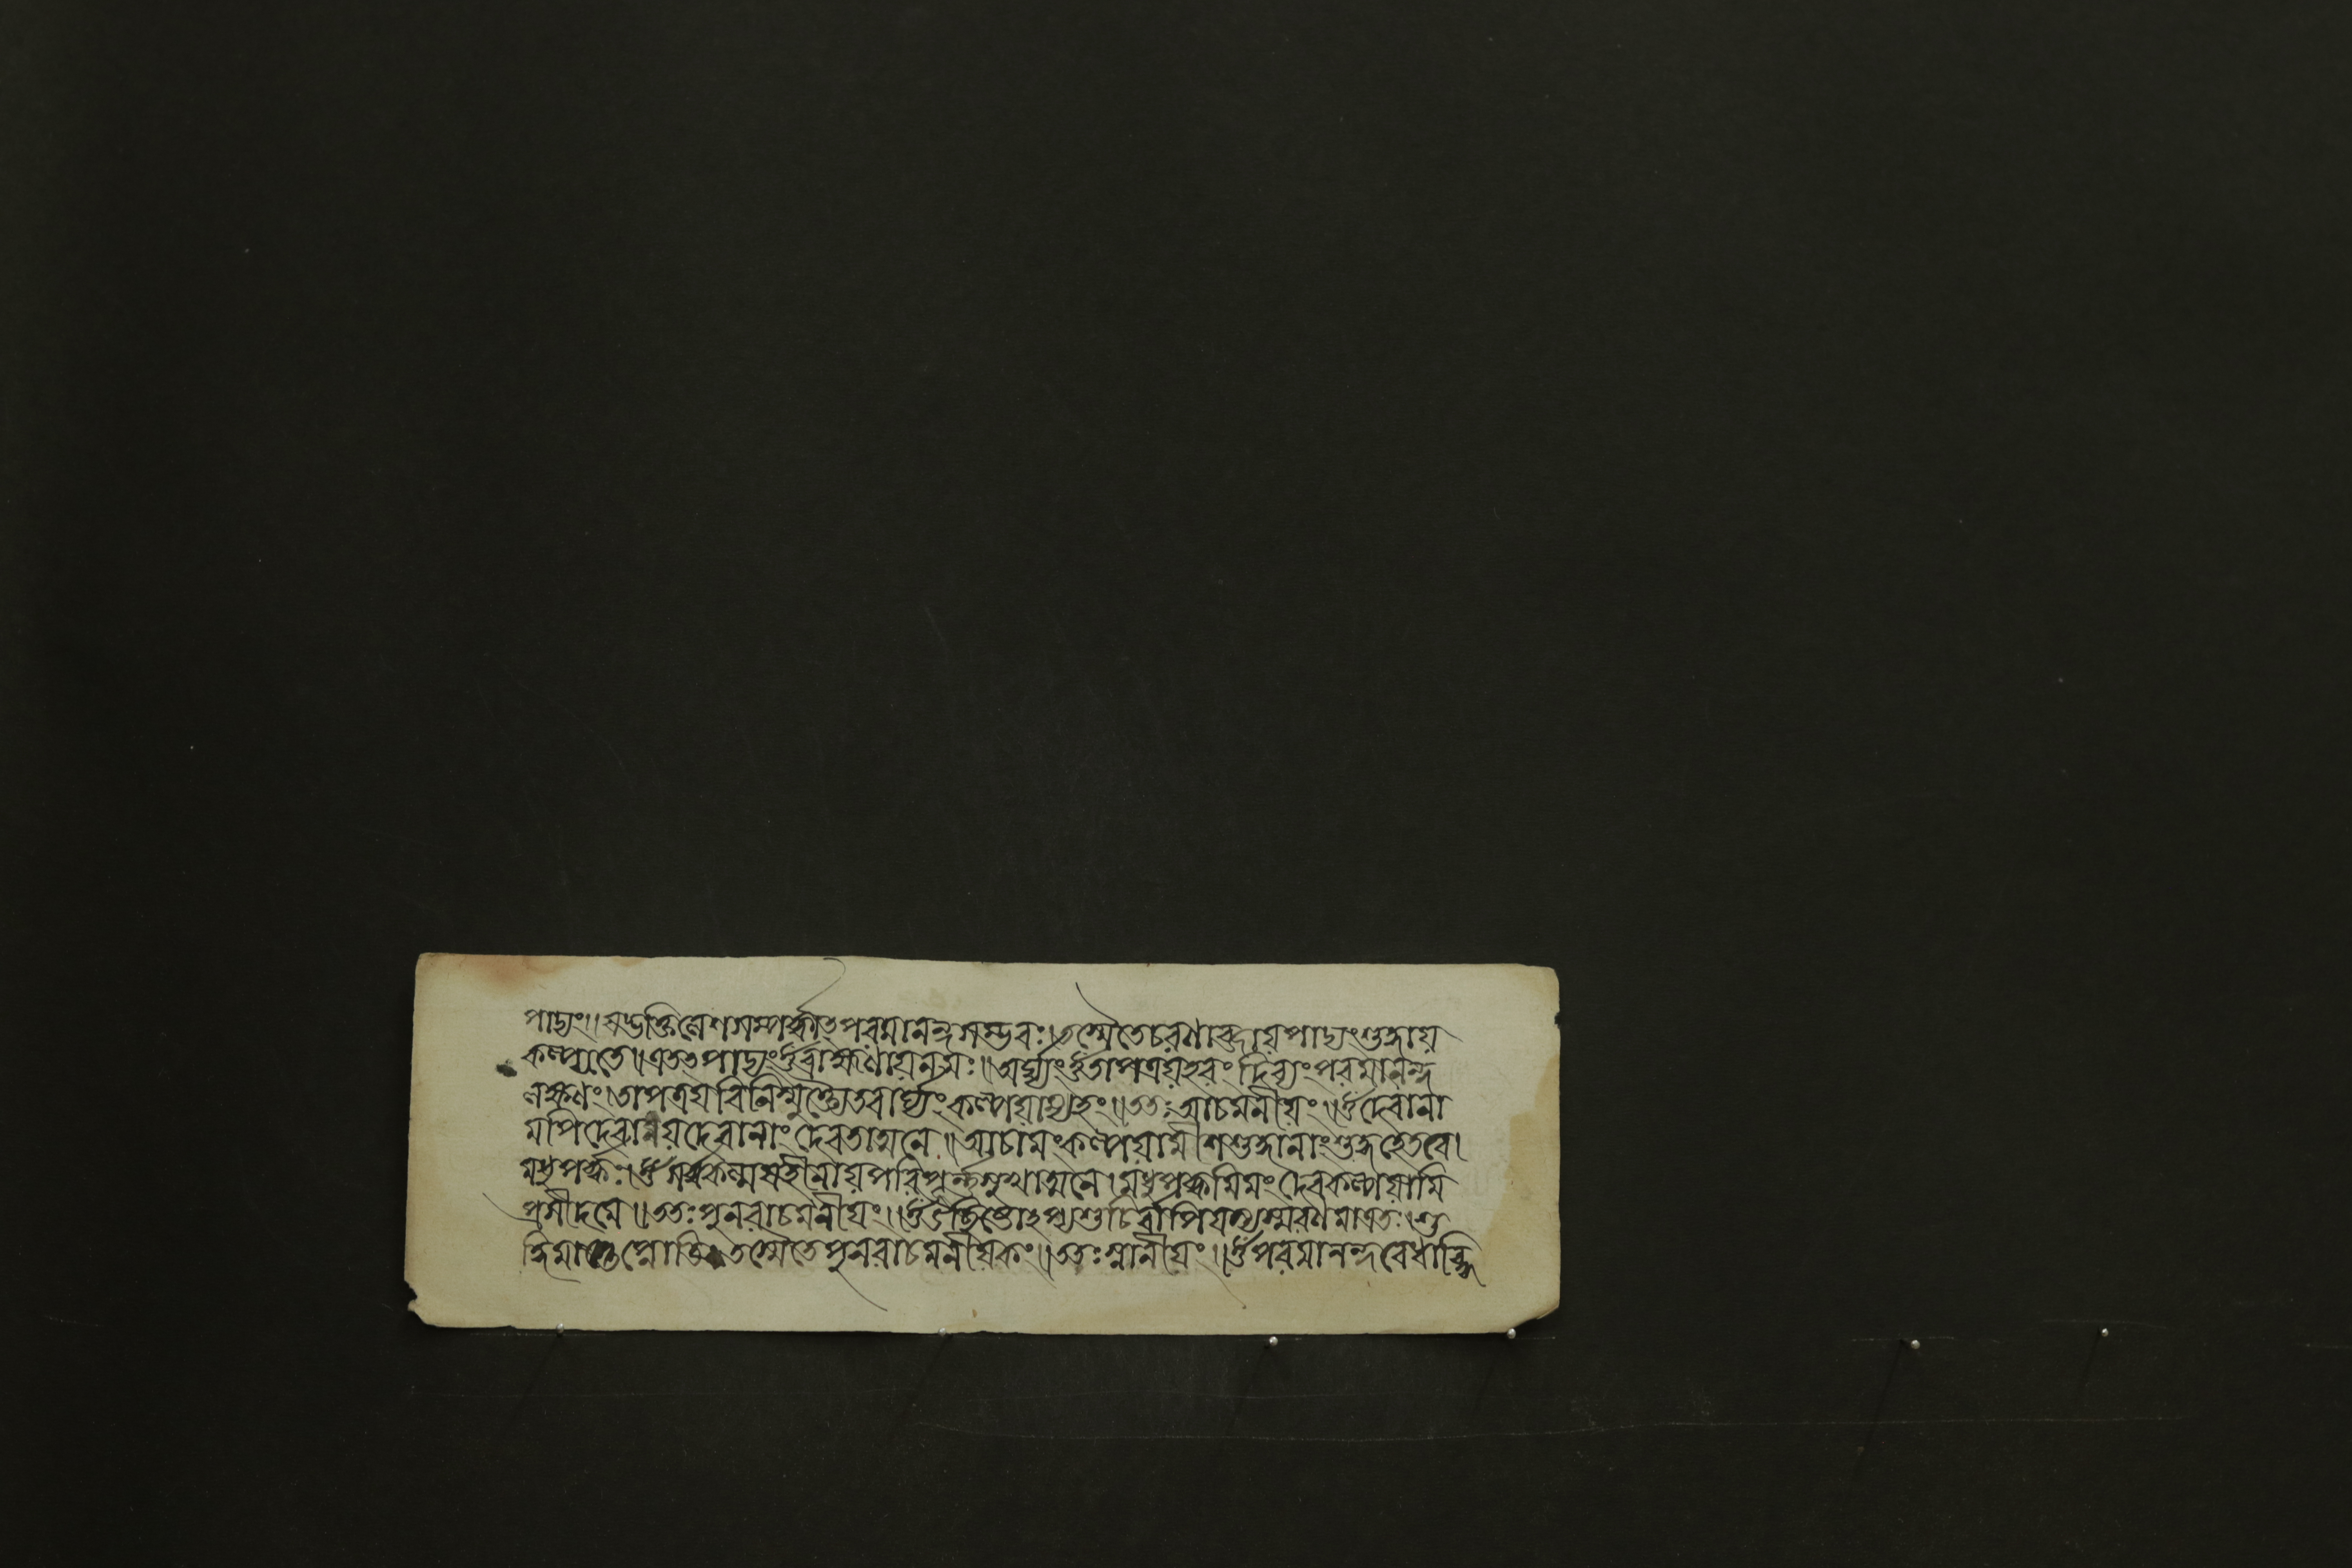 পাদ্যং॥যদ্ভক্তিলেশসম্পর্কাৎপরমানন্দসম্ভবঃ।তস্মৈতেচরণাব্জায়পাদ্যংশুদ্ধায়
কল্প্যতে॥এতৎপাদ্যংওঁব্রাহ্মণায়নমঃ॥অর্ঘ্যংওঁতাপত্রয়হরংদিব্যংপরমানন্দ
লক্ষণং।তাপত্রয়বিনির্ম্মুক্ত্যৈতবার্ঘ্যংকল্পয়াম্যহং॥ততঃআচমনীয়ং॥ওঁদেবানা
মপিদেবানয়দেবানাংদেবতাত্মনে॥আচামংকল্পয়ামীশশুদ্ধানাংশুদ্ধহেতবে।
মধুপর্কঃ।ওঁসর্বকল্মষহীনায়পরিপূর্ন্নসুখাত্মনে।মধুপর্কমিমংদেবকল্পয়ামি
প্রসীদমে॥ততঃপুনরাচমনীয়ং।ওঁউচ্ছিষ্টোঽপ্যশুচির্বাপিযস্যস্মরণমাত্রতঃ।শু
দ্ধিমাপ্নোতিতস্মৈতেপুনরাচমনীয়কং॥ততঃস্নানীয়ং॥ওঁপরমানন্দবোধাব্ধি